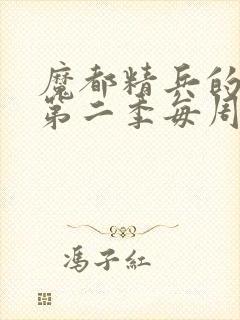 魔都精兵的
第二季每周
冯子红